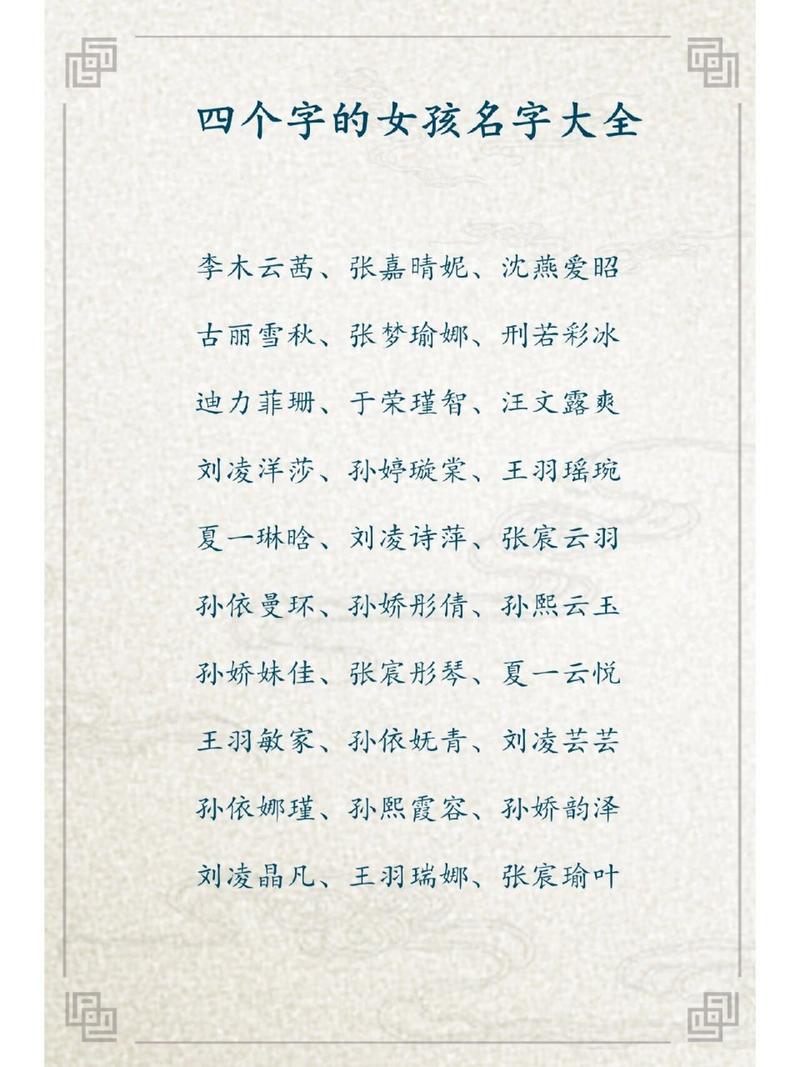 四个字的女孩名字大全
李木云茜、张嘉晴妮、沈燕爱昭
古丽雪秋、张梦瑜娜、刑若彩冰
迪力菲珊、于荣瑾智、汪文露爽
刘凌洋莎、孙婷璇棠、王羽瑶琬
夏一琳晗、刘凌诗萍、张宸云羽
孙依曼环、孙娇彤倩、孙熙云玉
孙娇妹佳、张宸彤琴、夏一云悦
王羽敏家、孙依妩青、刘凌芸芸
孙依娜瑾、孙熙霞容、孙娇韵泽
刘凌晶凡、王羽瑞娜、张宸瑜叶